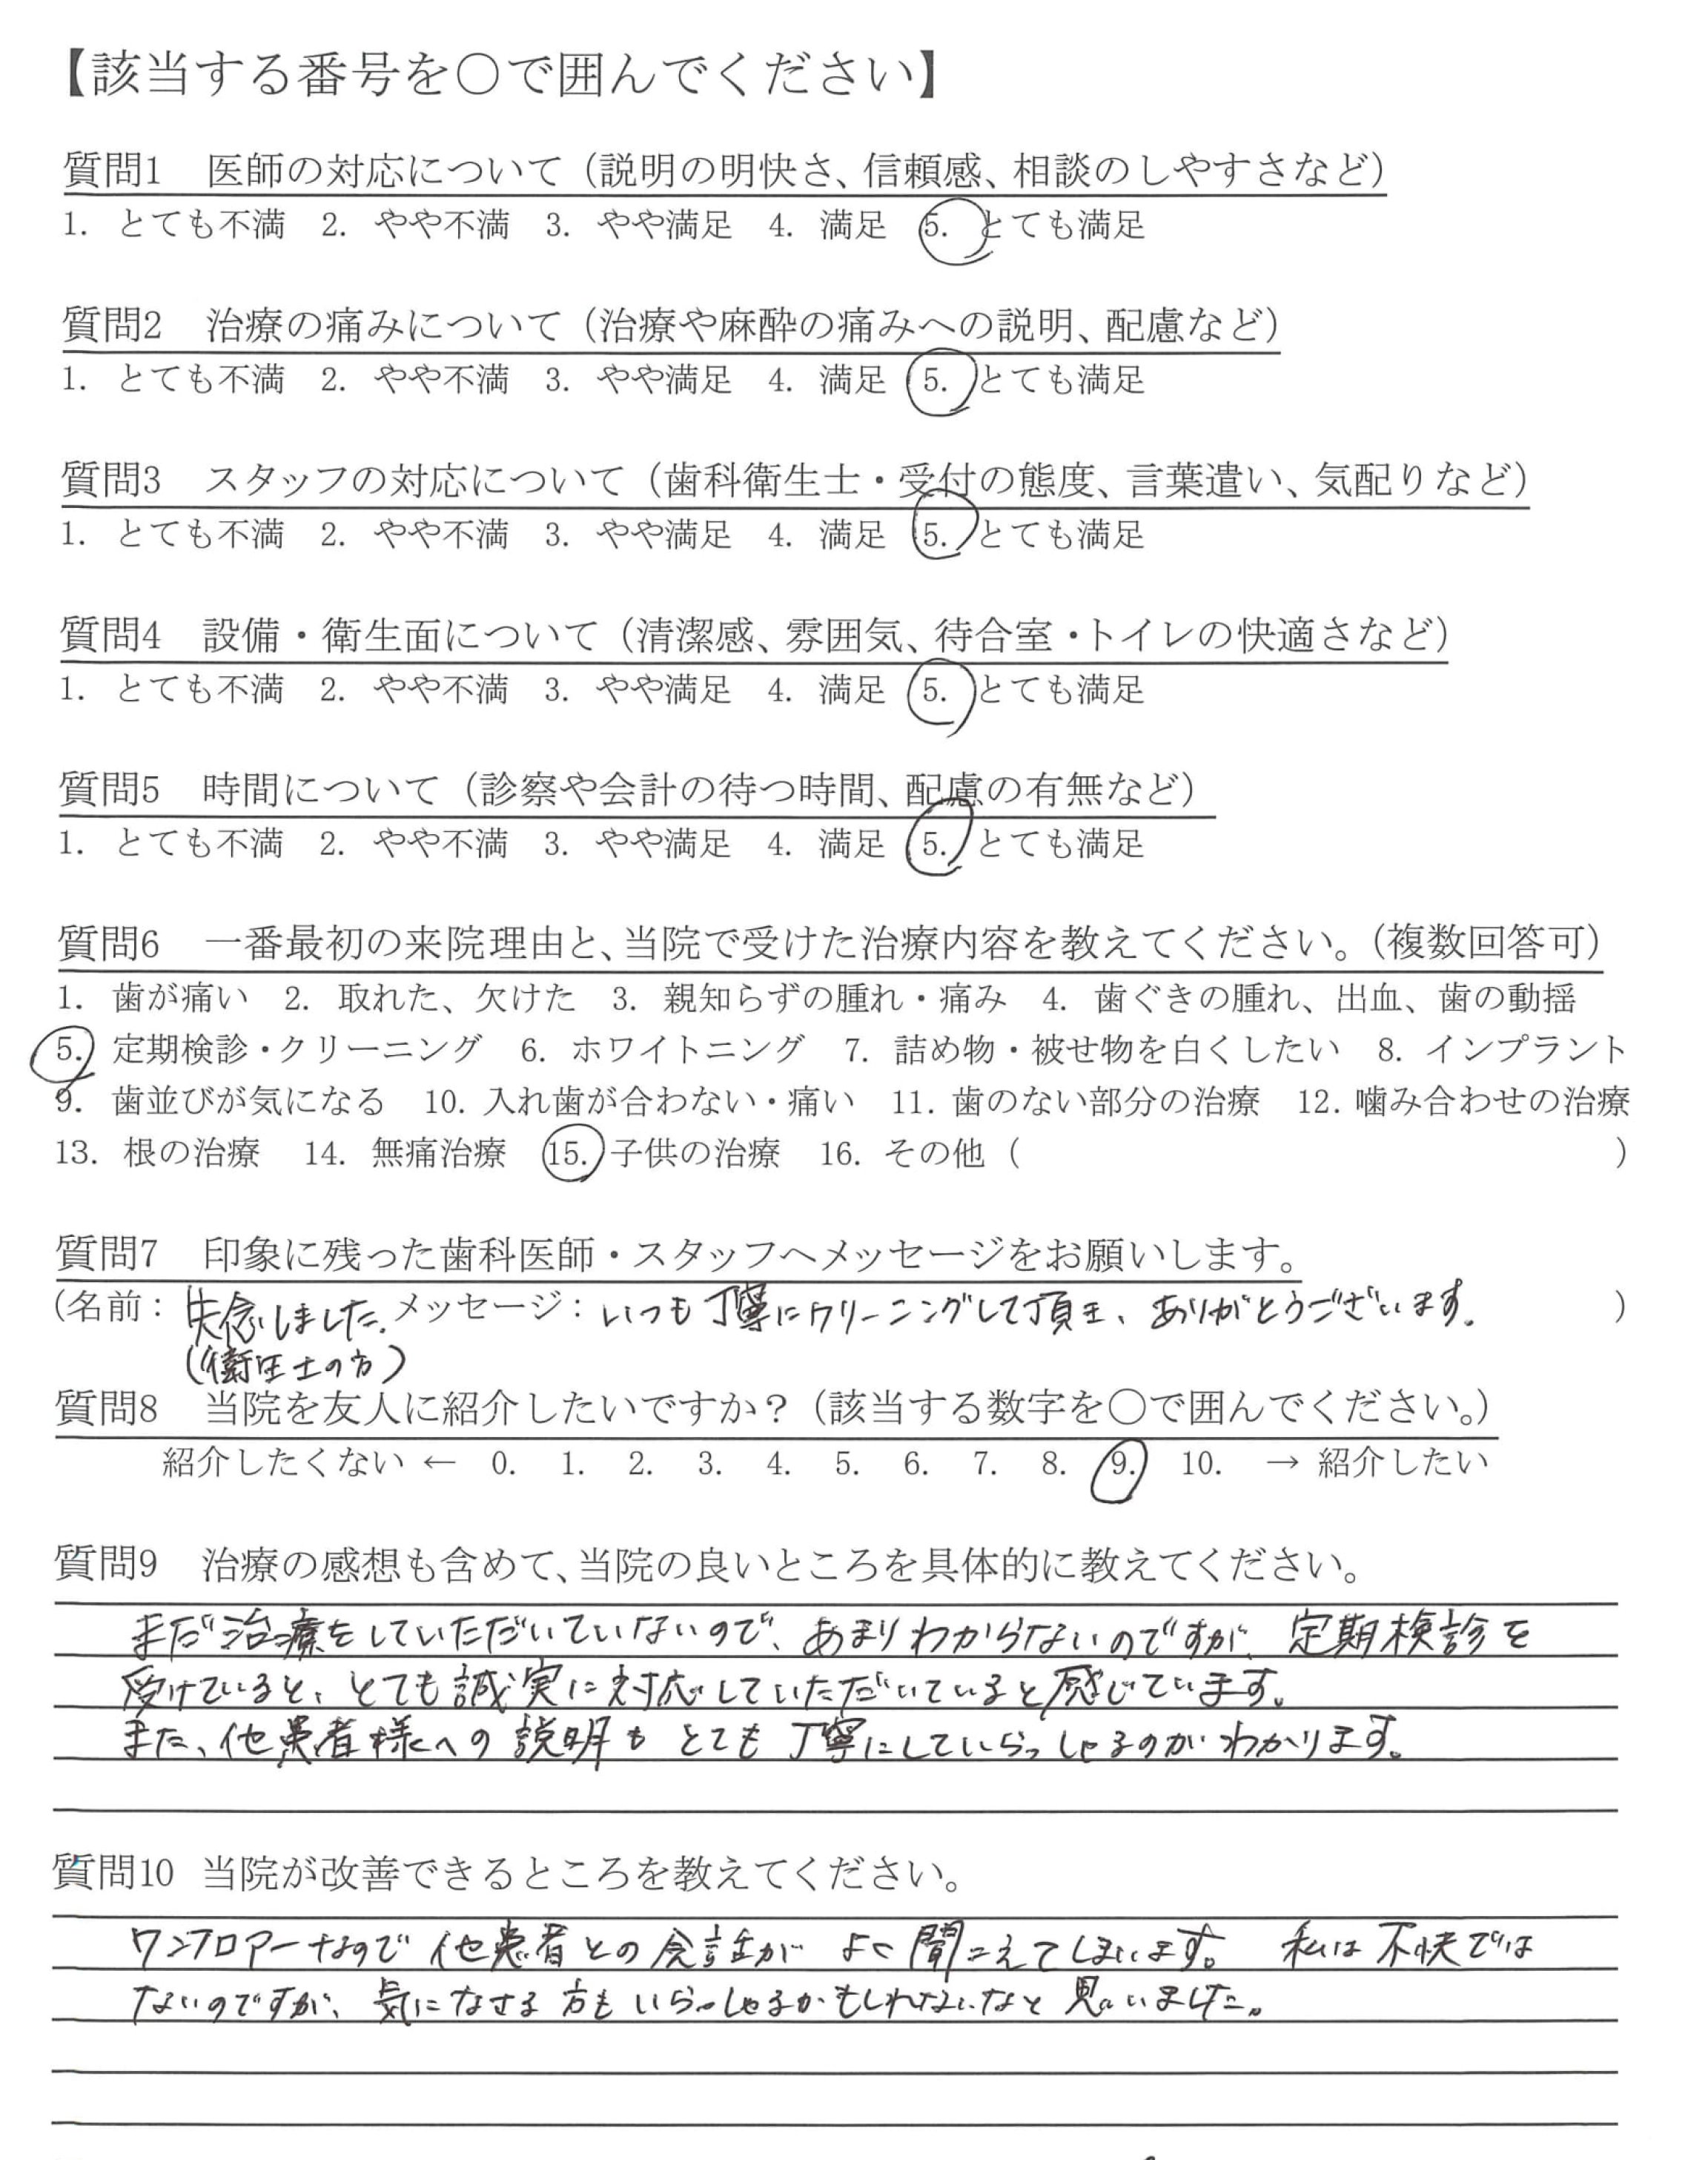 【該当する番号を○で囲んでください】
質問1　医師の対応について（説明の明快さ、信頼感、相談のしやすさなど）
1. とても不満　2. やや不満　3. やや満足　4. 満足　5. とても満足
質問2　治療の痛みについて（治療や麻酔の痛みへの説明、配慮など）
1. とても不満　2. やや不満　3. やや満足　4. 満足　5. とても満足
質問3　スタッフの対応について（歯科衛生士・受付の態度、言葉遣い、気配りなど）
1. とても不満　2. やや不満　3. やや満足　4. 満足　5. とても満足
質問4　設備・衛生面について（清潔感、雰囲気、待合室・トイレの快適さなど）
1. とても不満　2. やや不満　3. やや満足　4. 満足　5. とても満足
質問5　時間について（診察や会計の待つ時間、配慮の有無など）
1. とても不満　2. やや不満　3. やや満足　4. 満足　5. とても満足
質問6　一番最初の来院理由と、当院で受けた治療内容を教えてください。（複数回答可）
1. 歯が痛い　2. 取れた、欠けた　3. 親知らずの腫れ・痛み　4. 歯ぐきの腫れ、出血、歯の動揺
5. 定期検診・クリーニング　6. ホワイトニング　7. 詰め物・被せ物を白くしたい　8. インプラント
9. 歯並びが気になる　10. 入れ歯が合わない・痛い　11. 歯のない部分の治療　12. 噛み合わせの治療
13. 根の治療　14. 無痛治療　15. 子供の治療　16. その他（　）
質問7　印象に残った歯科医師・スタッフへメッセージをお願いします。
（名前：失念しました。メッセージ：いつも丁寧にクリーニングして頂き、ありがとうございます。）
（衛生士の方）
質問8　当院を友人に紹介したいですか？（該当する数字を○で囲んでください。）
紹介したくない ← 0. 1. 2. 3. 4. 5. 6. 7. 8. 9. 10. → 紹介したい
質問9　治療の感想も含めて、当院の良いところを具体的に教えてください。
まだ治療をしていただいていないので、あまりわからないのですが、定期検診を
受けていると、とても誠実に対応していただいていると感じています。
また、他患者様への説明もとても丁寧にしていらっしゃるのがわかります。
質問10 当院が改善できるところを教えてください。
ワンフロアーなので他患者との会話がよく聞こえてしまいます。私は不快では
ないのですが、気になさる方もいらっしゃるかもしれないなと思いました。